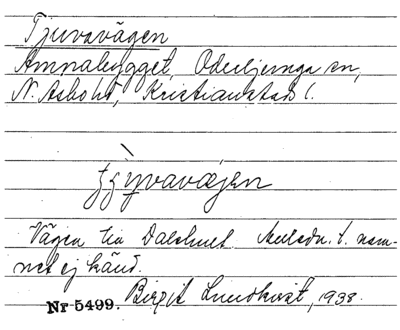 Tjuvavägen
Amnabygget, Oderljunga sn,
N. Åsbohd, Kristianstads l.
Vägen till Dalshult. Anledn. t. nam-
net ej känd.
Nr 5499. Birgit Lundkvist, 1938.